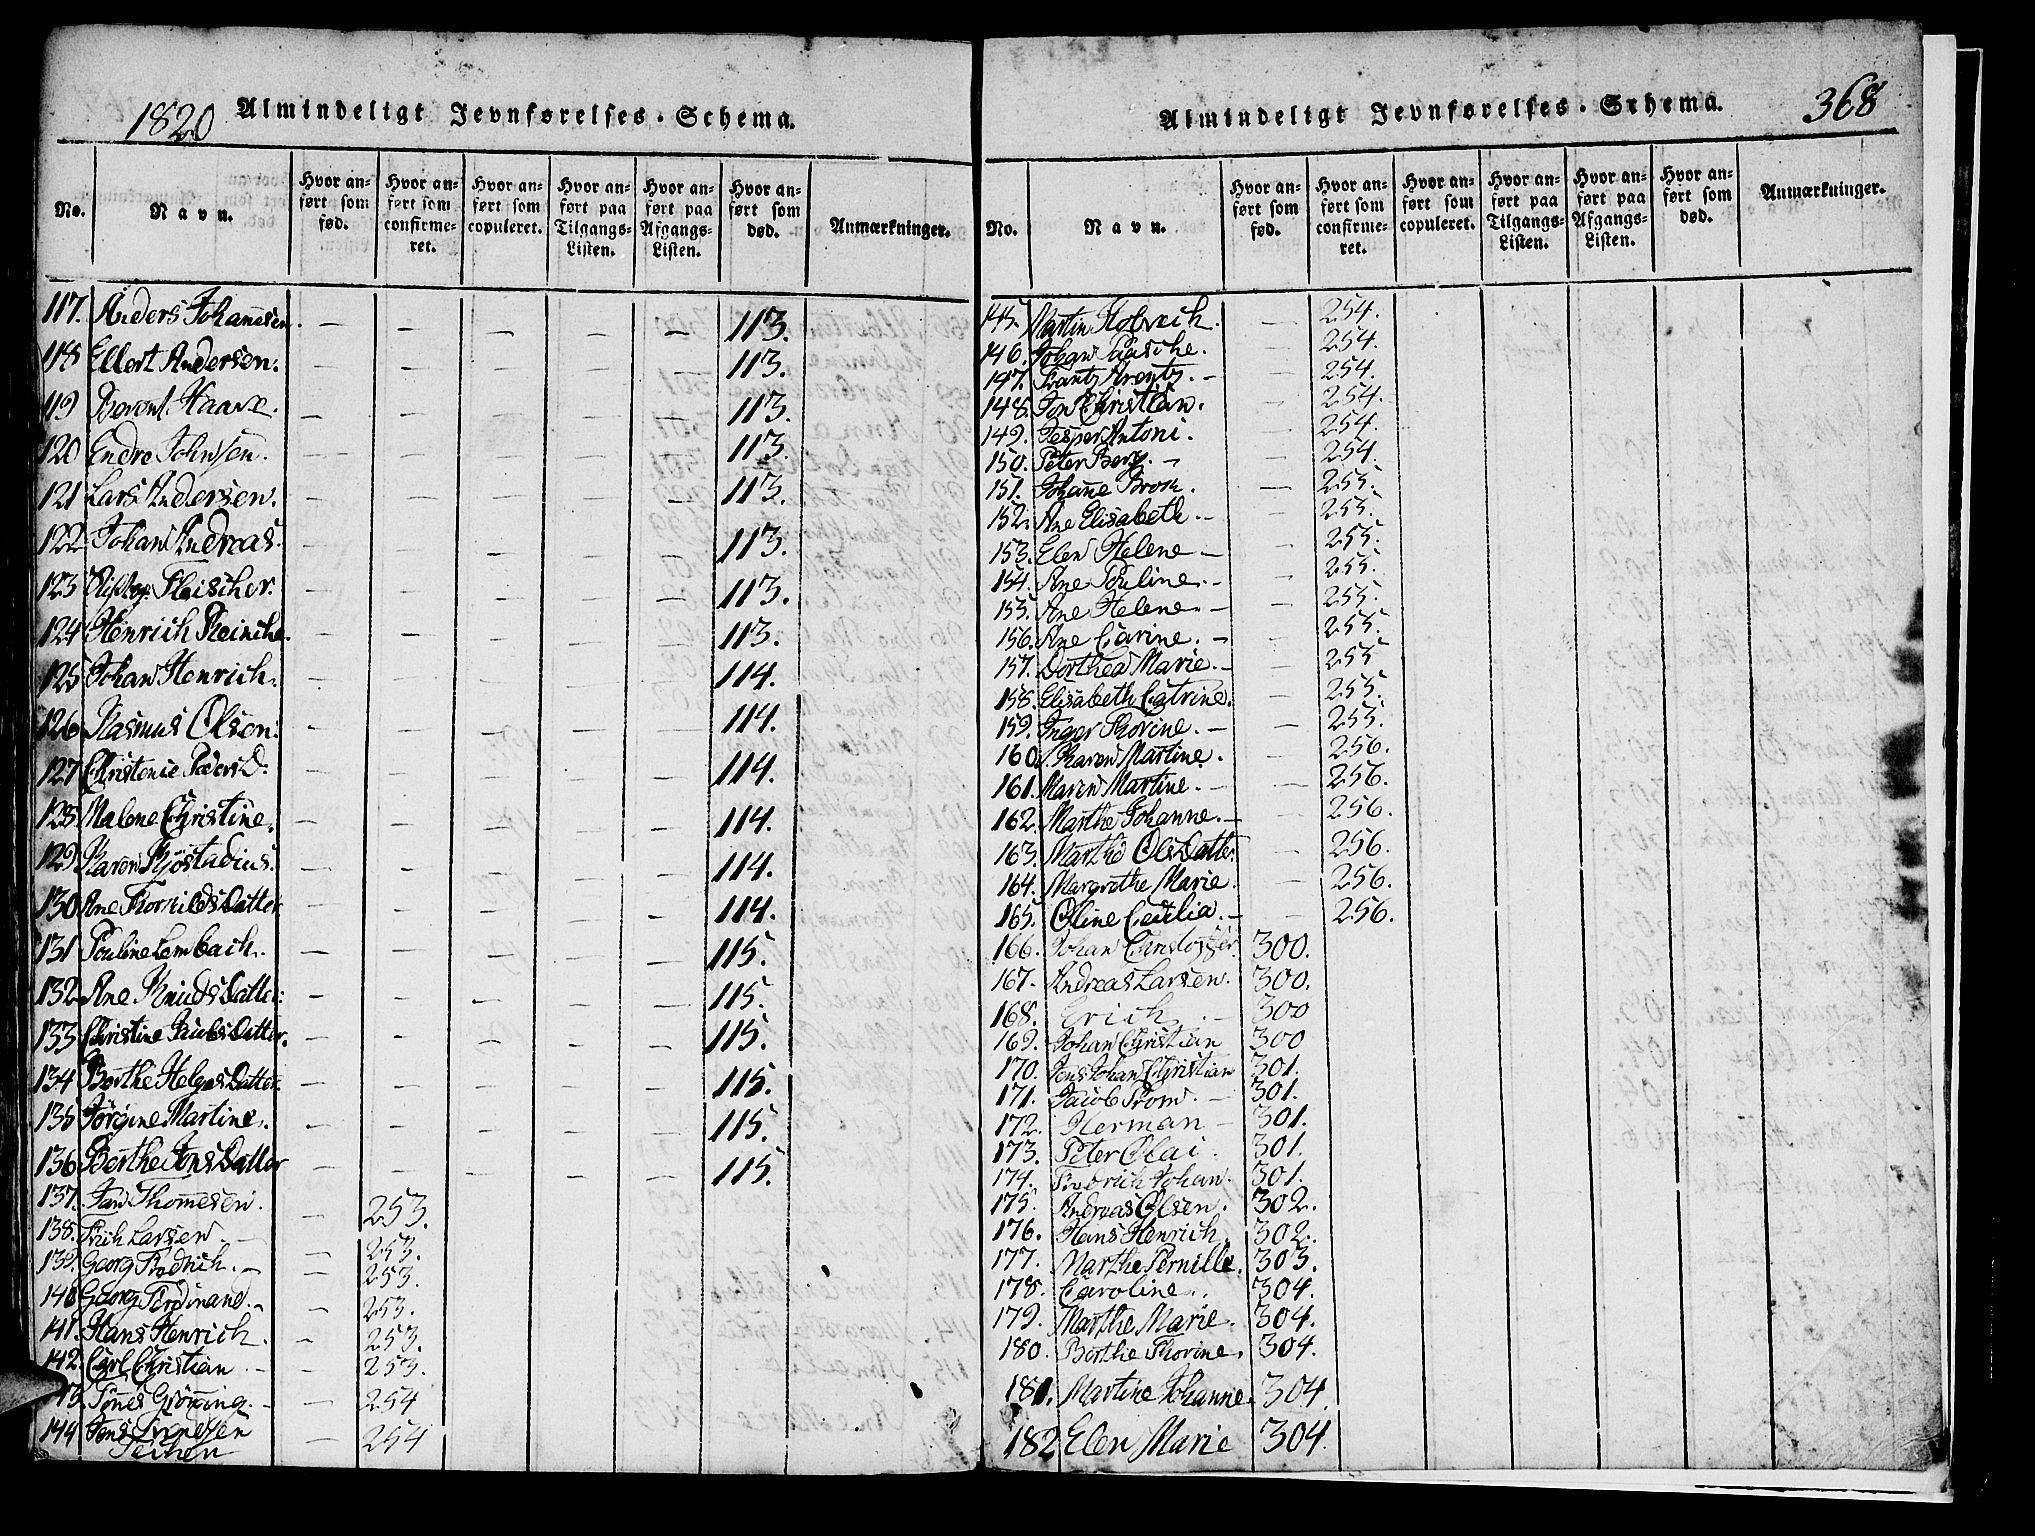 1820 Almindeligt Jevnførelses-Schema.
No. Navn. Hvor anført som fød. Hvor anført som confirmeret. Hvor anført som copuleret. Hvor anført paa Tilgangs-Listen. Hvor anført paa Afgangs-Listen. Hvor anført som død. Anmærkninger.
117. Anders Johannesen. — — — — — 113.
118 Ellert Andersen. — — — — — 113.
119 Berent Haave. — — — — — 113.
120 Endre Johnsen. — — — — — 113.
121 Lars Andersen. — — — — — 113.
122 Johan Andreas. — — — — — 113.
123 Fleischer. — — — — — 113.
124 Henrich Reinche. — — — — — 113.
125 Johan Henrich. — — — — — 114.
126 Rasmus Olsen. — — — — — 114.
127 Christense Peders D. — — — — — 114.
128 Malene Christine. — — — — — 114.
129 Karen Kjöstadius. — — — — — 114.
130 Ane Thorkilds Datter — — — — — 114.
131 Pouline Lembach. — — — — — 115.
132 Ane Knuds Datter. — — — — — 115.
133 Christine Jacobs Datter. — — — — — 115.
134 Berthe Helges Datter. — — — — — 115.
135 Jörgine Martine. — — — — — 115.
136 Berthe Jons Datter — — — — — 115.
137. Jan Thomesen. — 253.
138. Erich Larsen. — 253.
139. Georg Fredrich. — 253.
140 Georg Ferdinand. — 253.
141. Hans Henrich. — 253.
142. Carl Christian. — 253.
143. Tönes Grönning. — 254
144 Jens — 254
Almindeligt Jevnførelses-Schema. 368
No. Navn. Hvor anført som fød. Hvor anført som confirmeret. Hvor anført som copuleret. Hvor anført paa Tilgangs-Listen. Hvor anført paa Afgangs-Listen. Hvor anført som død. Anmærkninger.
145. Martin — 254.
146. Johan Paasche. — 254.
147. Frantz Arentz. — 254.
148. Jon Christian. — 254.
149. Jesper Antoni. — 254.
150. Peter Berg. — 254.
151. Johanne Brock. — 255.
152. Ane Elisabeth. — 255.
153. Elen Helene — 255.
154. Ane Pouline. — 255.
155. Ane Helene. — 255.
156. Ane Carine. — 255.
157. Dorthea Marie. — 255
158. Elisabeth Catrine. — 255.
159. Inger Thorine. — 255.
160. Karen Martine. — 256.
161. Maren Martine. — 256.
162. Marthe Johanne. — 256.
163. Marthe Ols Datter. — 256.
164. Margrethe Marie. — 256.
165. Oline Cecilia. — 256.
166. Johan Christopher. 300.
167. Andreas Larsen. 300.
168. Erich. — 300
169. Johan Christian 300
170. Jens Johan Christian 301.
171. Jacob From. — 301.
172. Herman — 301.
173. Peter Olai. 301.
174. Fredrich Johan. 301.
175. Andreas Olsen. 302.
176. Hans Henrich. 302.
177. Marthe Pernille. 303.
178. Caroline. 304.
179. Marthe Marie. 304.
180. Berthe Thorine. 304.
181. Martine Johanne. 304.
182 Elen Marie 304.